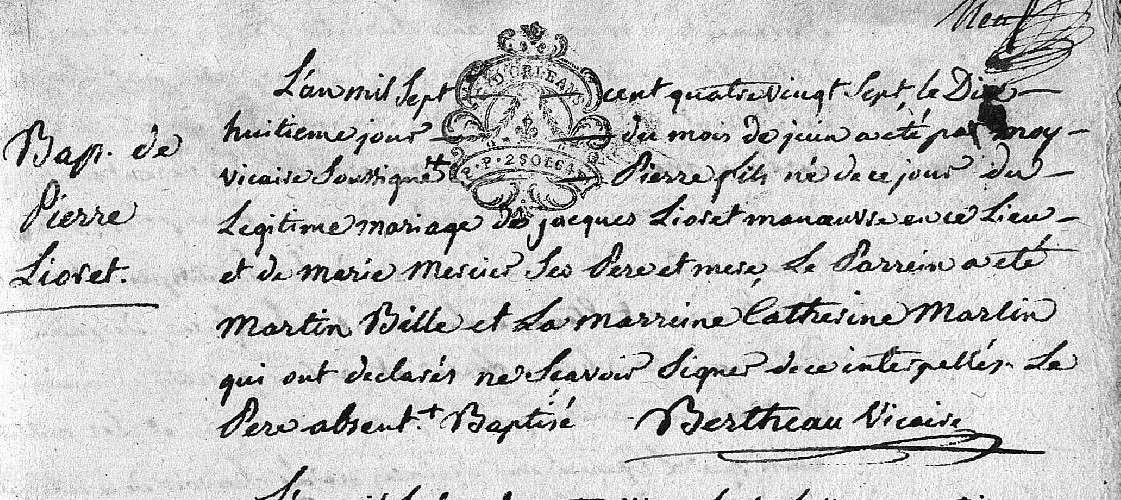 neuf
Bap. de
Pierre
Lioret.
D'ORLEANS
L'an mil sept cent quatre vingt sept, le Dix
huitieme jour du mois de juin a eté par moy
vicaire soussigné ++ Pierre fils né de ce jour du
Legitime mariage de jacques Lioret manœuvre en ce Lieu
et de marie mercier ses Pere et mere, Le Parrein a eté
Martin Bille et La marreine Catherine Martin
qui ont declarés ne sçavoir signer de ce interpellés. Le
Pere absent. + Baptisé Bertheau Vicaire